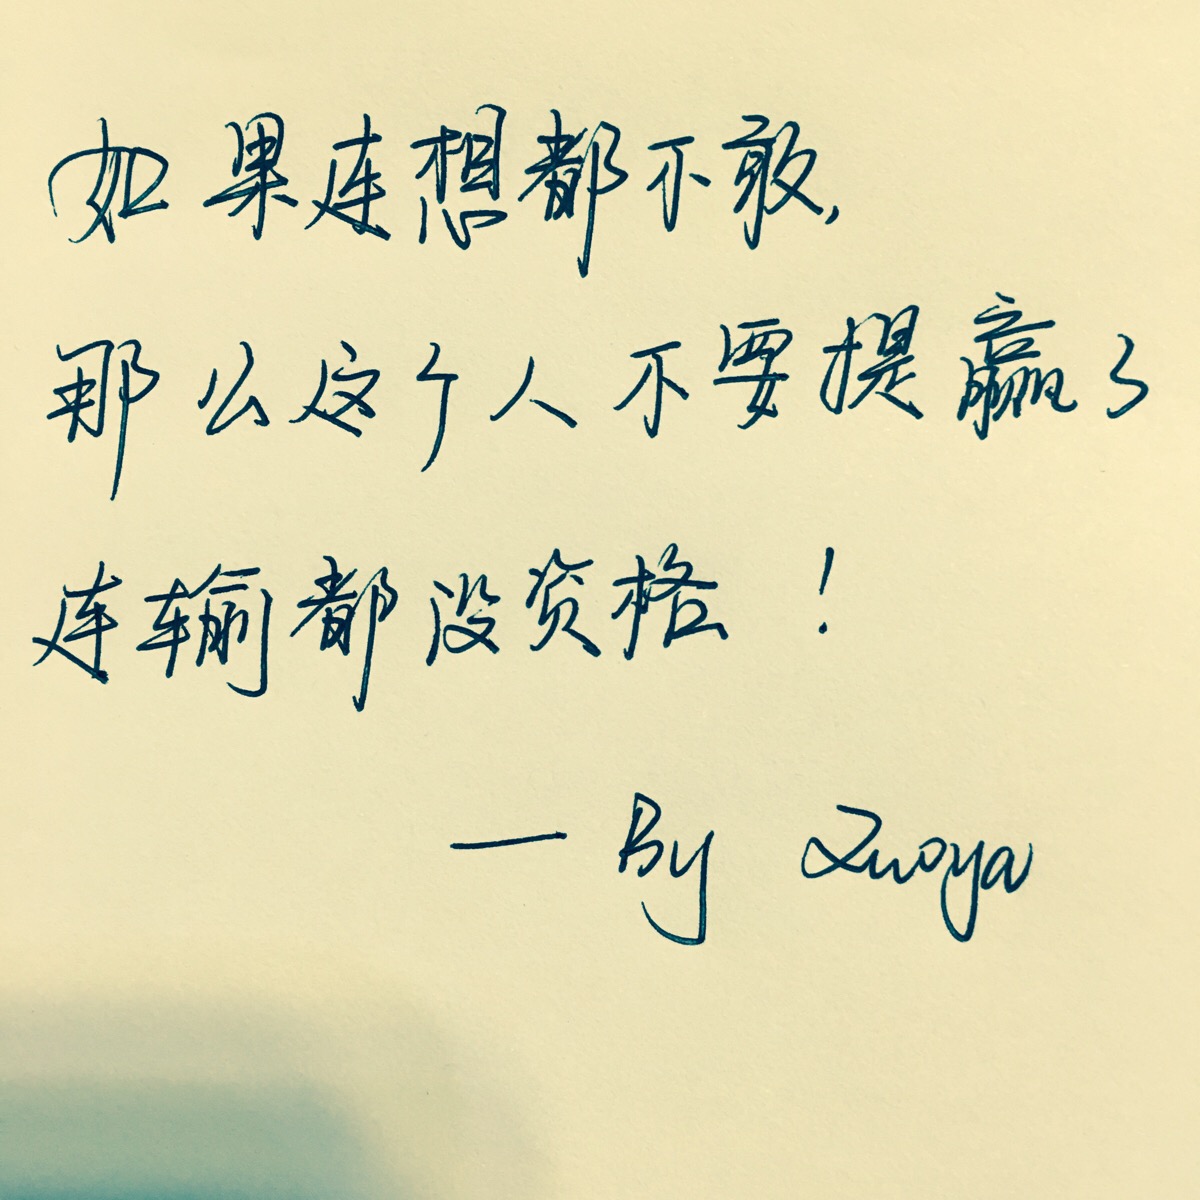 如果连想都不敢,
那么这个人不要提赢了
连输都没资格！
— By Zuoya